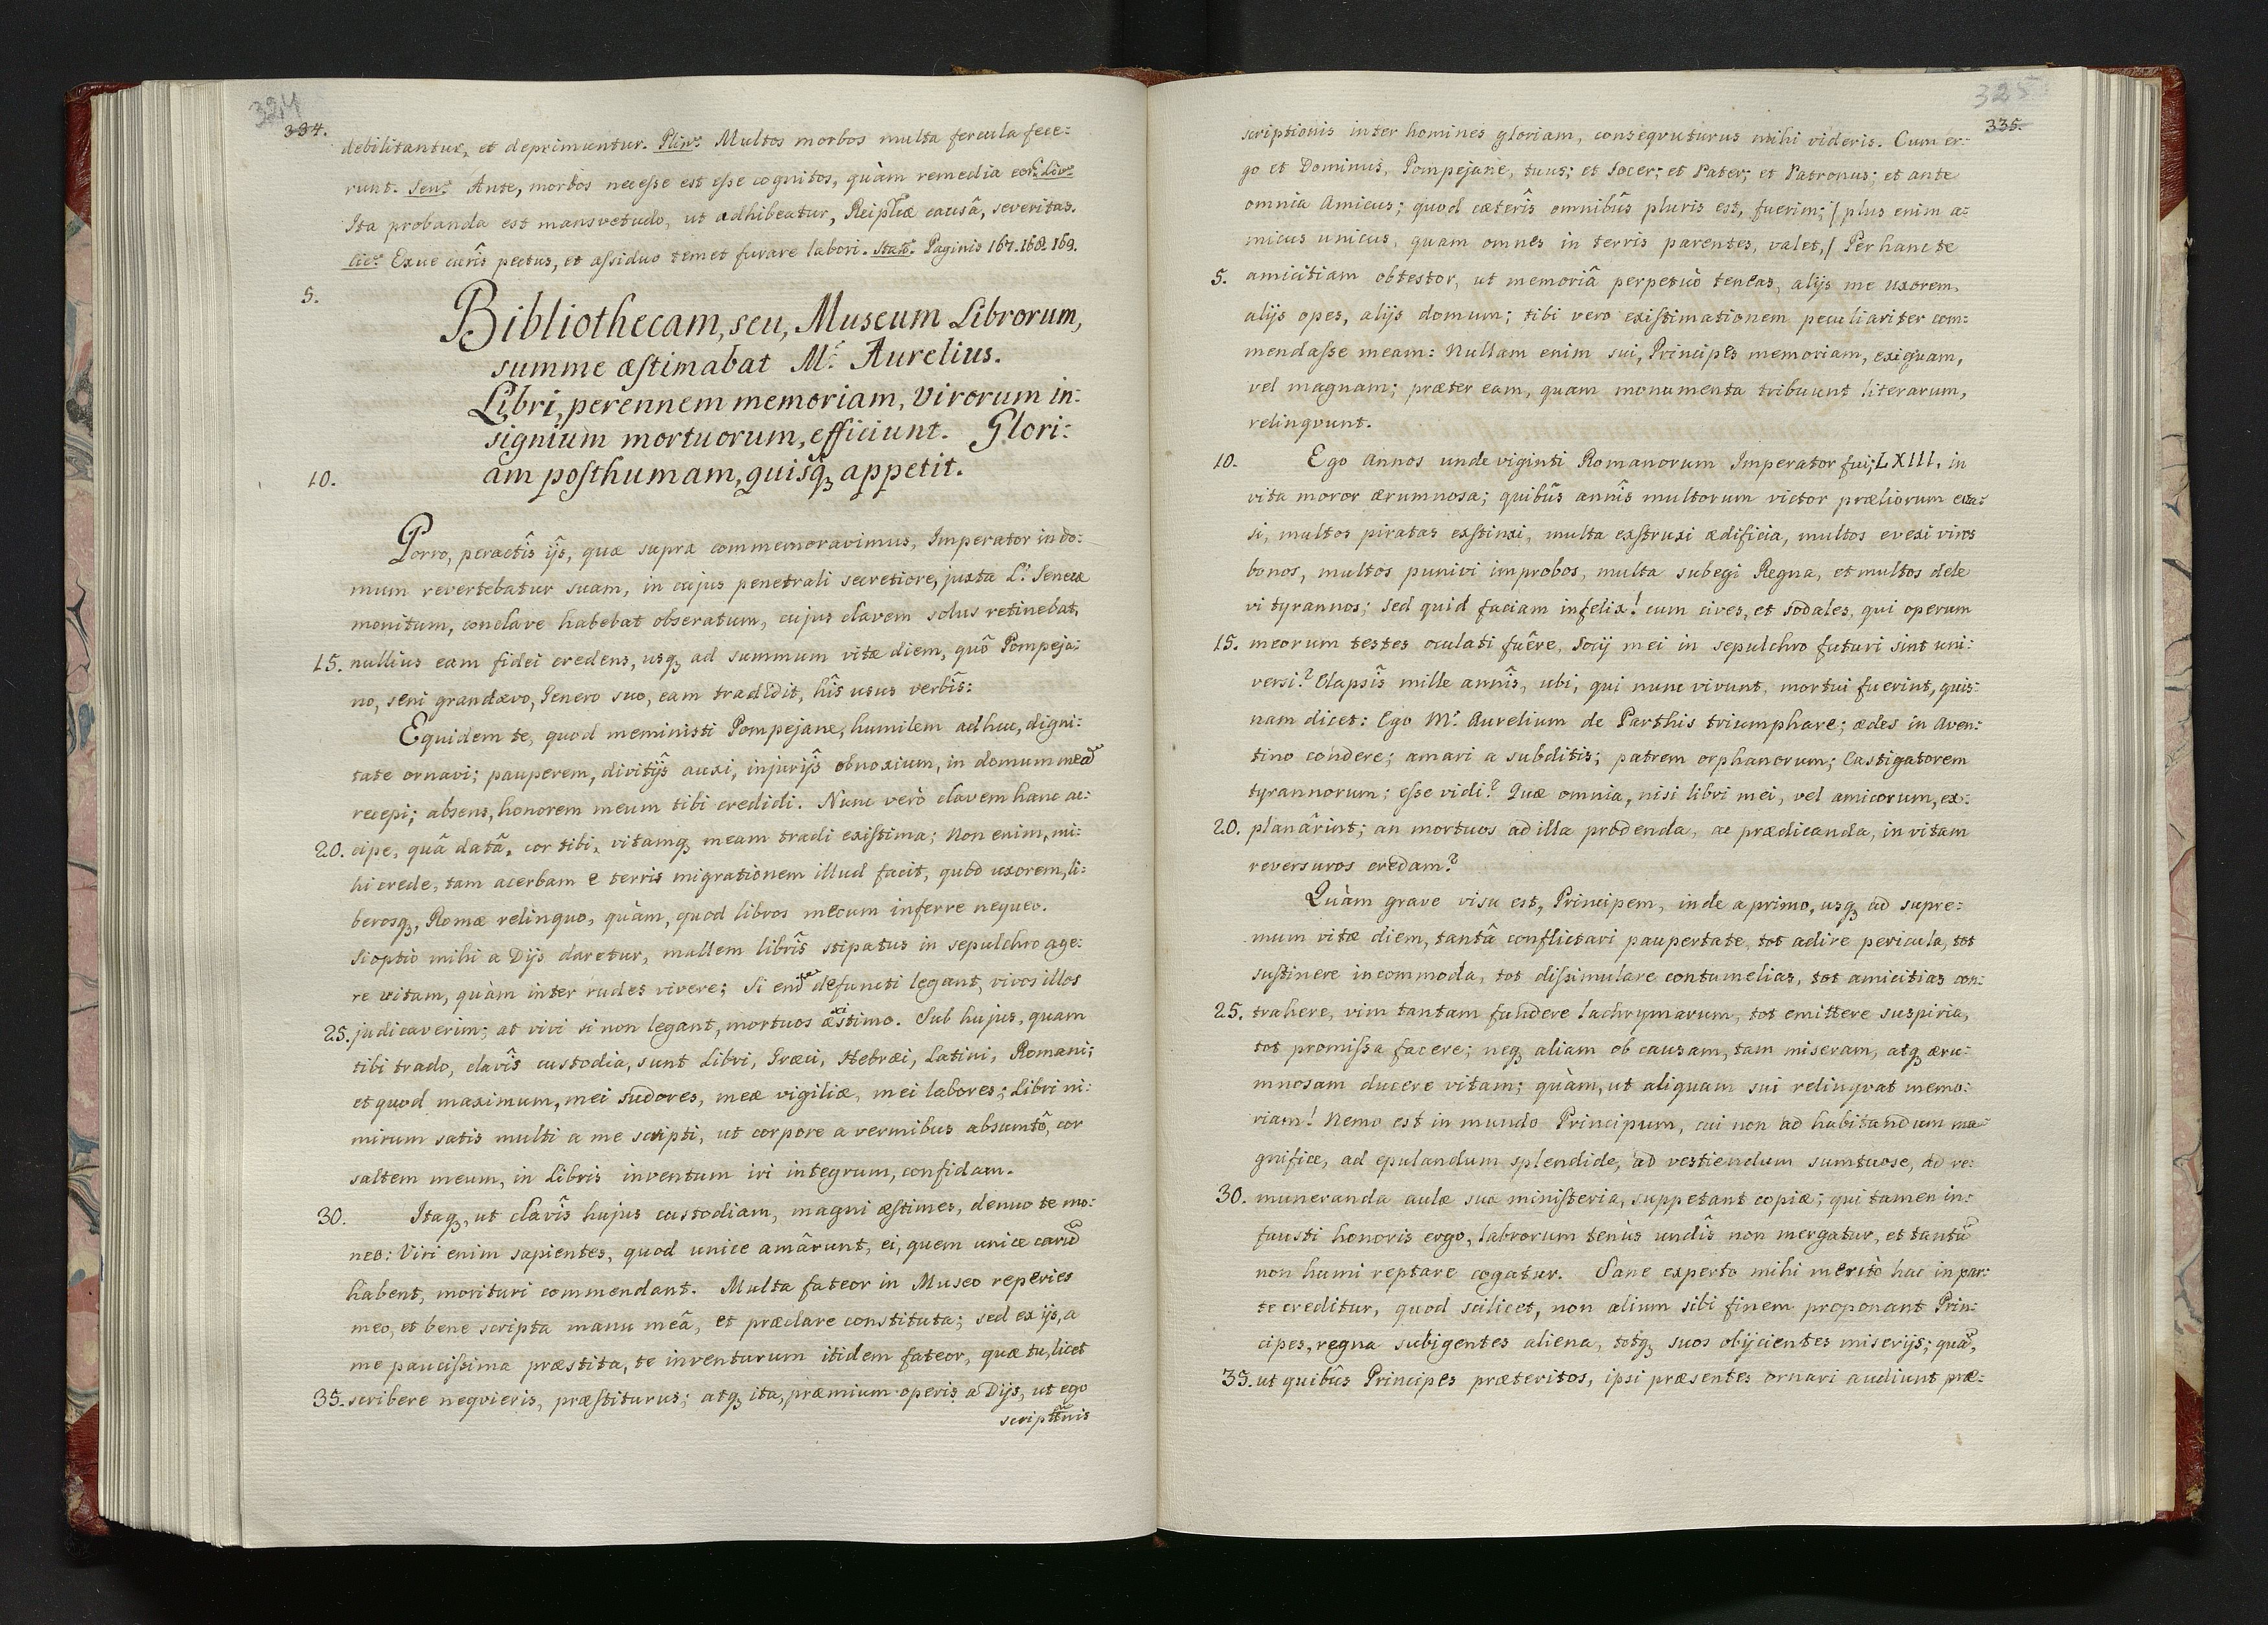 324
334.
debilitantur, et deprimuntur. Plin: Multos morbos multa fercula fece:
runt. Sen: Ante, morbos necesse est esse cognitos, quàm remedia eor: Liv:
Ita probanda est mansvetudo, ut adhibeatur, Reiplicæ causâ, severitas.
Cic: Exue curîs pectus, et assiduo temet furare labori. Stat: Paginis 167.168.169.
5.
Bibliothecam, seu, Museum Librorum,
summe æstimabat M: Aurelius.
Libri, perennem memoriam, Virorum in:
signium mortuorum, efficiunt. Glori:
10. am posthumam, quisq₃ appetit.
Porro, peractîs ijs, quæ supra commemoravimus, Imperator in do:
mum revertebatur suam, in cujus penetrali secretiore, juxta L: Senecæ
monitum, conclave habebat obseratum, cujus clavem solus retinebat,
15. nullius eam fidei credens, usq₃ ad summum vitæ diem, quô Pompeja:
no, seni grandævo, Genero suo, eam tradidit, hîs usus verbîs:
Equidem te, quod meministi Pompejane, humilem adhuc, digni:
tate ornavi; pauperem, divitijs auxi, injurijs obnoxium, in domum mea
recepi; absens, honorem meum tibi credidi. Nunc verò clavem hanc ac:
20. cipe, quâ datâ, cor tibi, vitamq₃ meam tradi existima; Non enim, mi:
hi crede, tam acerbam e terris migrationem illud facit, quòd uxorem, li:
berosq₃, Romæ relinquo, quàm, quod libros mecum inferre nequeo.
Si optio mihi a Dijs daretur, mallem librîs stipatus in sepulchro age:
re vitam, quàm inter rudes vivere; Si defuncti legant, vivos illos
25. judicaverim; at vivi si non legant, mortuos æstimo. Sub hujus, quam
tibi trado, clavîs custodia, sunt Libri, Græci, Hebræi, Latini, Romani;
et quod maximum, mei sudores, meæ vigiliæ, mei labores; Libri ni:
mirum satis multi a me scripti, ut corpore a vermibus absumtô, cor
saltem meum, in Libris inventum iri integrum, confidam.
30. Itaq₃, ut clavîs hujus custodiam, magni æstimes, denuo te mo:
neo: Viri enim sapientes, quod unice amârunt, ei, quem unice carũ
habent, morituri commendant. Multa fateor in Museo reperies
meo, et bene scripta manu meâ, et præclare constituta; sed ex ijs, a
me paucissima præstita, te inventurum itidem fateor, quæ tu, licet
35. scribere neqvieris, præstiturus; atq₃ ita, præmium operis a Dijs, ut ego
scriptionis
325
335.
scriptionis inter homines gloriam, consequuturus mihi videris. Cum er:
go et Dominus, Pompejane, tuus; et Socer; et Pater; et Patronus; et ante
omnia Amicus; quod cæterîs omnibûs pluris est, fuerim; / plus enim a:
micus unicus, quam omnes in terris parentes, valet, / Per hanc te
5. amicitiam obtestor, ut memoriâ perpetuò teneas, alijs me uxorem,
alijs opes, alijs domum; tibi vero existimationem peculiariter com:
mendasse meam: Nullam enim sui, Principes memoriam, exiguam,
vel magnam; præter eam, quam monumenta tribuunt literarum,
relinqvunt.
10. Ego annos unde viginti Romanorum Imperator fui; LXIII. in
vita moror ærumnosa; quibûs annîs multorum victor præliorum eva:
si, multos piratas exstinxi, multa exstruxi ædificia, multos evexi viros
bonos, multos punivi improbos, multa subegi Regna, et multos dele
vi tyrannos; Sed quid faciam infelix! cum cives, et sodales, qui operum
15. meorum testes oculati fuêre, Socij mei in sepulchro futuri sint uni:
versi? Elapsîs mille annîs, ubi, qui nunc vivunt, mortui fuerint, quis:
nam dicet: Ego M: Aurelium de Parthis triumphare; ædes in Aven:
tino condere; amari a subditis; patrem orphanorum; Castigatorem
tyrannorum; esse vidi? Quæ omnia, nisi libri mei, vel amicorum, ex:
20. planârint; an mortuos ad illa prodenda, ac prædicanda, in vitam
reversuros credam?
Quàm grave visu est, Principem, inde a primo, usq₃ ad supre:
mum vitæ diem, tantâ conflictari paupertate, tot adire pericula, tot
sustinere incommoda, tot dissimulare contumelias, tot amicitias con:
25. trahere, vim tantam fundere lachrymarum, tot emittere suspiria,
tot promissa facere; neq₃ aliam ob causam, tam miseram, atq₃ æru:
mnosam ducere vitam; quàm, ut aliquam sui relinqvat memo:
riam! Nemo est in mundo Principum, cui non ad habitandum ma:
gnifice, ad epulandum splendide, ad vestiendum sumtuose, ad re:
30. muneranda aulæ suæ ministeria, suppetant copiæ; qui tamen in:
fausti honoris ergo, labrorum tenùs undîs non mergatur, et tantũ
non humi reptare cogatur. Sane experto mihi meritò hac in par:
te creditur, quod scilicet, non alium sibi finem proponant Prin:
cipes, regna subigentes aliena, totq₃ suos obijcientes miserijs; quã,
35. ut quibûs Principes præteritos, ipsi præsentes ornari audiunt præ: